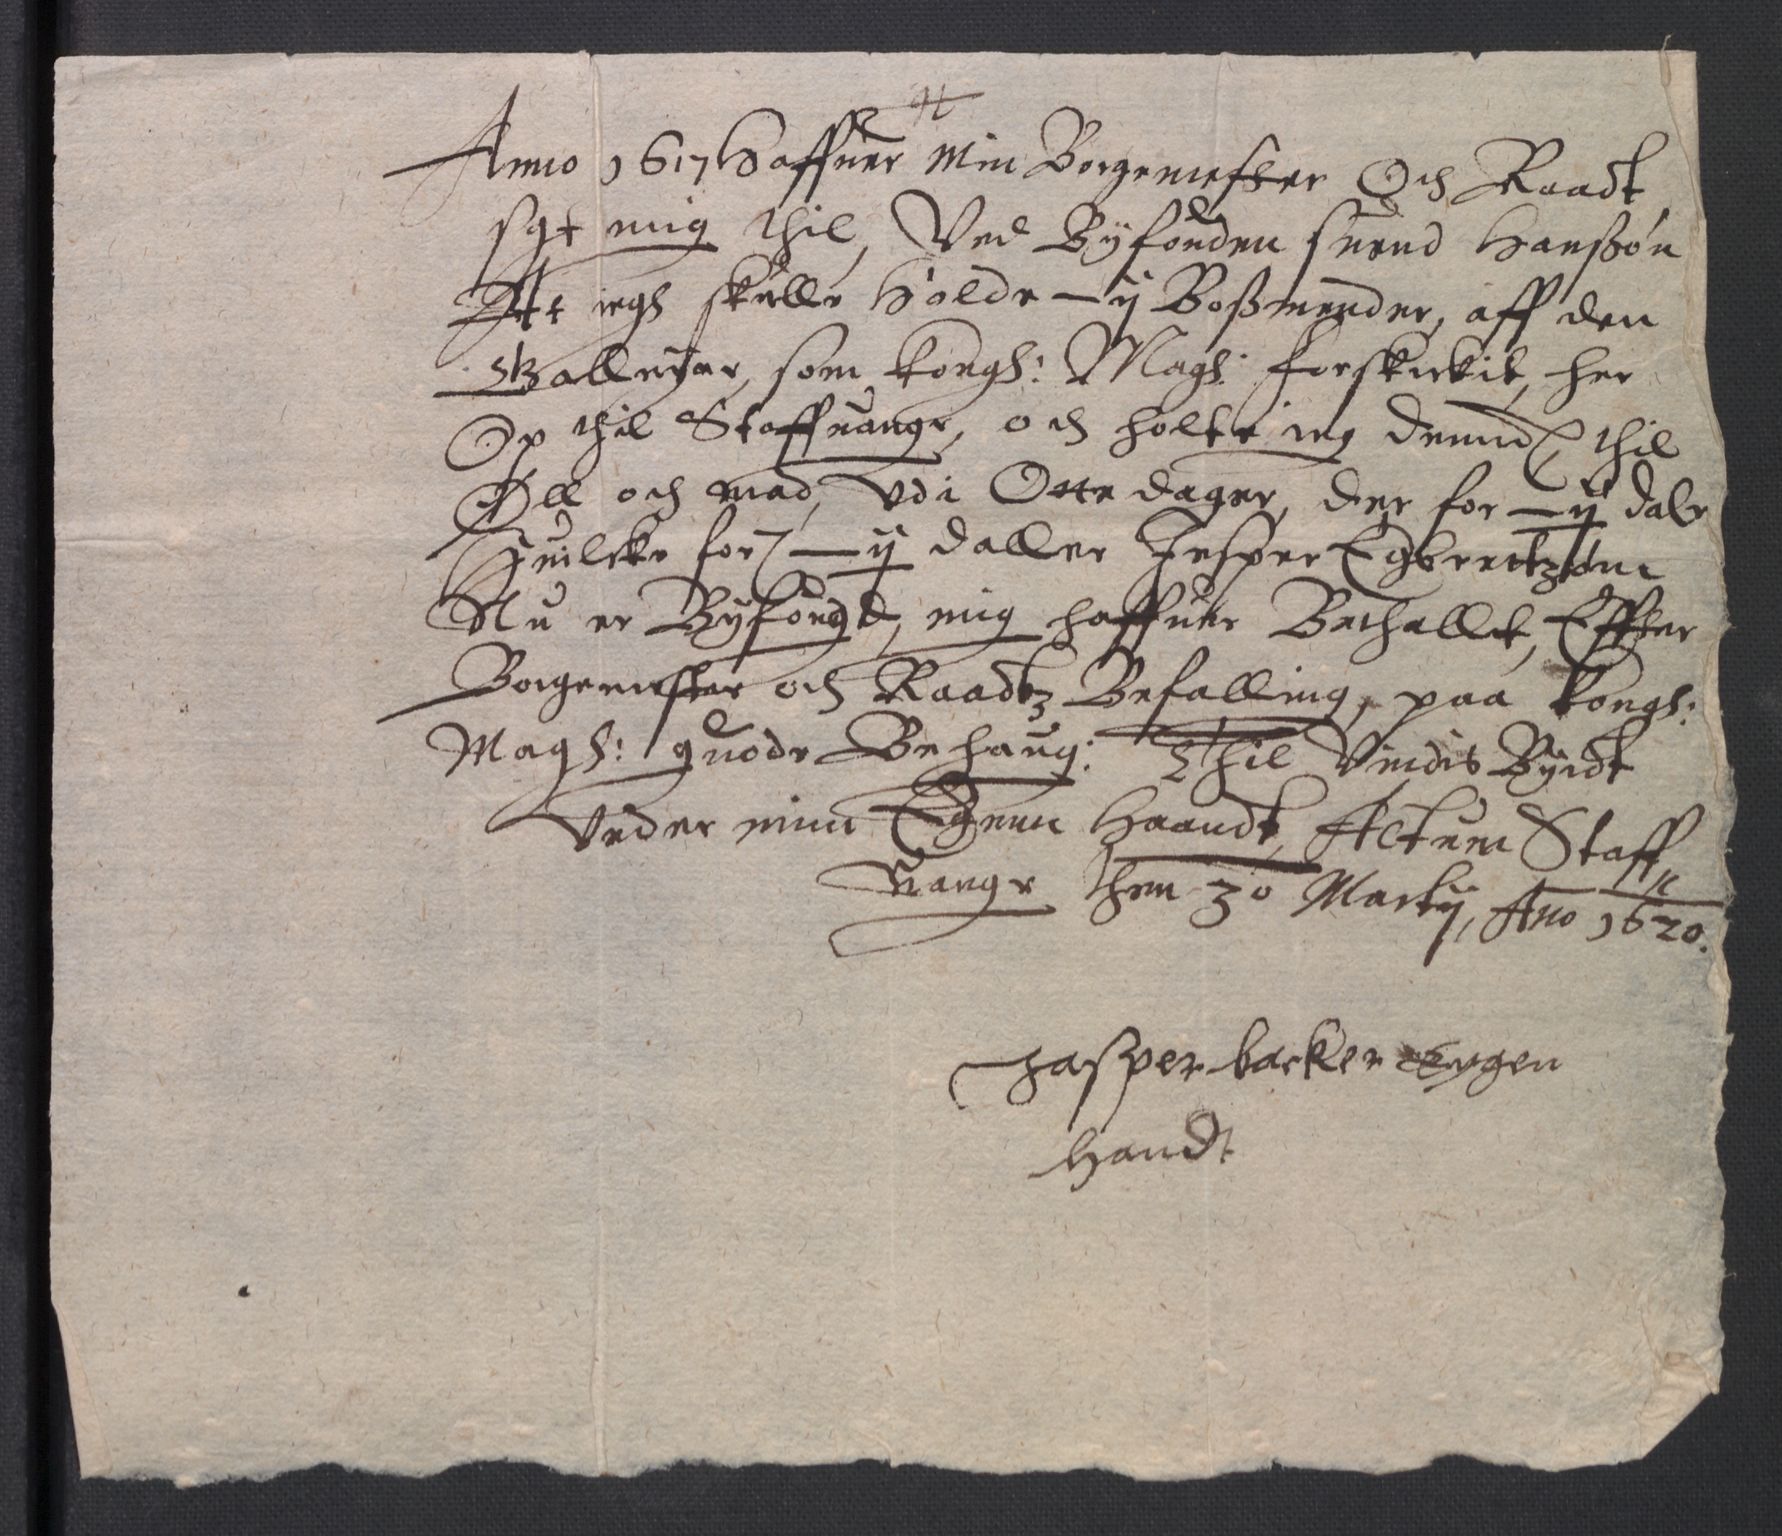 Anno 1617 Haffuer Min Borgemester Och Raadt
sgt mig thil, Ved Byfouden suend Hanßøn
Att iegh skulle Holde – ij Boßmender, aff den
Galleyar, som kongh: Magh: forskickit, her
Op thil Staffuange, och holte ieg dennd thil
Øll och mad, vdi Otte dager, der for – ij dale
Huilcke for – ij daller Jesper Egbrettzønn
Nu er Byfougd, mig haffuer Bethallet, Effter
Borgemester och Raadtz Befalling, paa kongh:
Magh: guode Behaug: Thil Vindisbyrdt
Vnder minn Egenn Haandt, Actum Staff
Vange then 30 Martij, Ano 1620.
Jasper backer Eygen
Handt